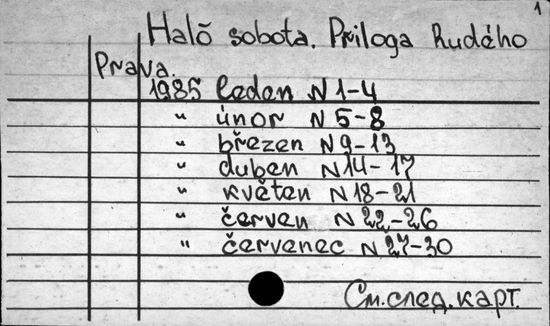 1
Halō sobota. Přiloga Rudého
Prava.
1985 leden N 1-4
" únor N 5-8
" březen N 9-13
" duben N 14-17
" květen N 18-21
" červen N 22-26
" červenec N 27-30
См. след. карт.